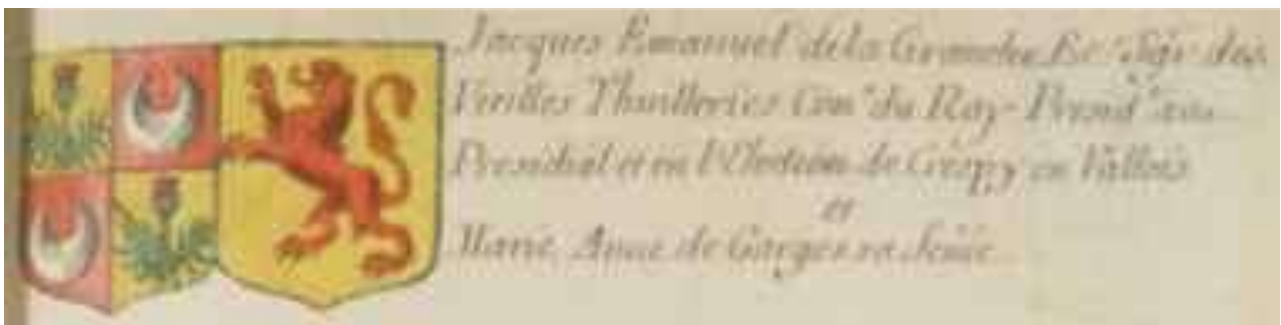 Jacques Emanuel dela Grancher Ec. Sgr. des
Vieilles Thuilleries Conr. du Roy Presidt. au
Presidial et en l'Election de Crespy en Vallois
et
Marie Anne de Garges sa feme